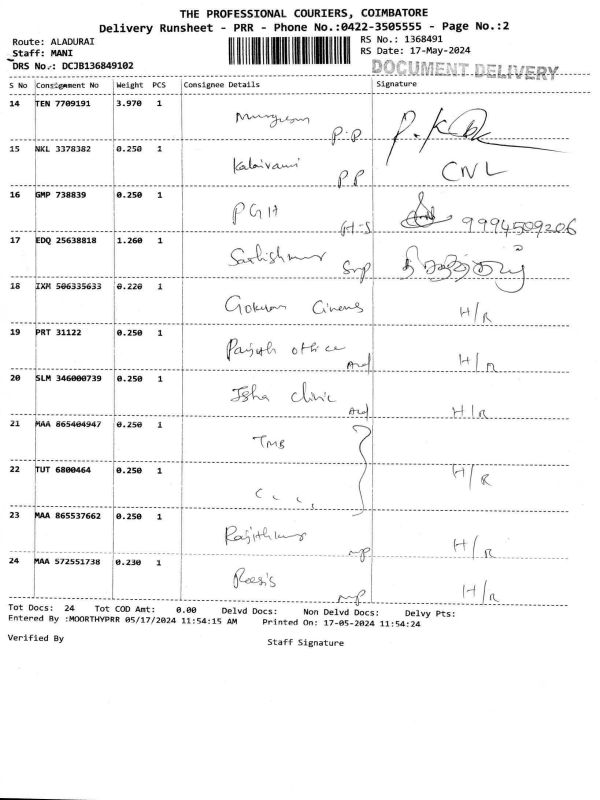 THE PROFESSIONAL COURIERS, COIMBATORE
Delivery Runsheet - PRR - Phone No.:0422-3505555 - Page No.:2
Route: ALADURAI
Staff: MANI
DRS No.: DCJB136849102
RS No.: 1368491
RS Date: 17-May-2024
DOCUMENT DELIVERY
S No Consignment No Weight PCS Consignee Details Signature
14 TEN 7709191 3.970 1 Murugesan
P.P
15 NKL 3378382 0.250 1 Kalaivani CNL
PP
16 GMP 738839 0.250 1 PGH 9994509206
17 EDQ 25638818 1.260 1 Sathishkumar
18 IXM 506335633 0.220 1 Gokulam Cinemas H/R
19 PRT 31122 0.250 1 office H/R
20 SLM 346000739 0.250 1 Isha clinic H/R
21 MAA 865404947 0.250 1 TMB
22 TUT 6800464 0.250 1 H/R
23 MAA 865537662 0.250 1 Rajithkumar H/R
MP
24 MAA 572551738 0.230 1 H/R
MP
Tot Docs: 24 Tot COD Amt: 0.00 Delvd Docs: Non Delvd Docs: Delvy Pts:
Entered By :MOORTHYPRR 05/17/2024 11:54:15 AM Printed On: 17-05-2024 11:54:24
Verified By Staff Signature